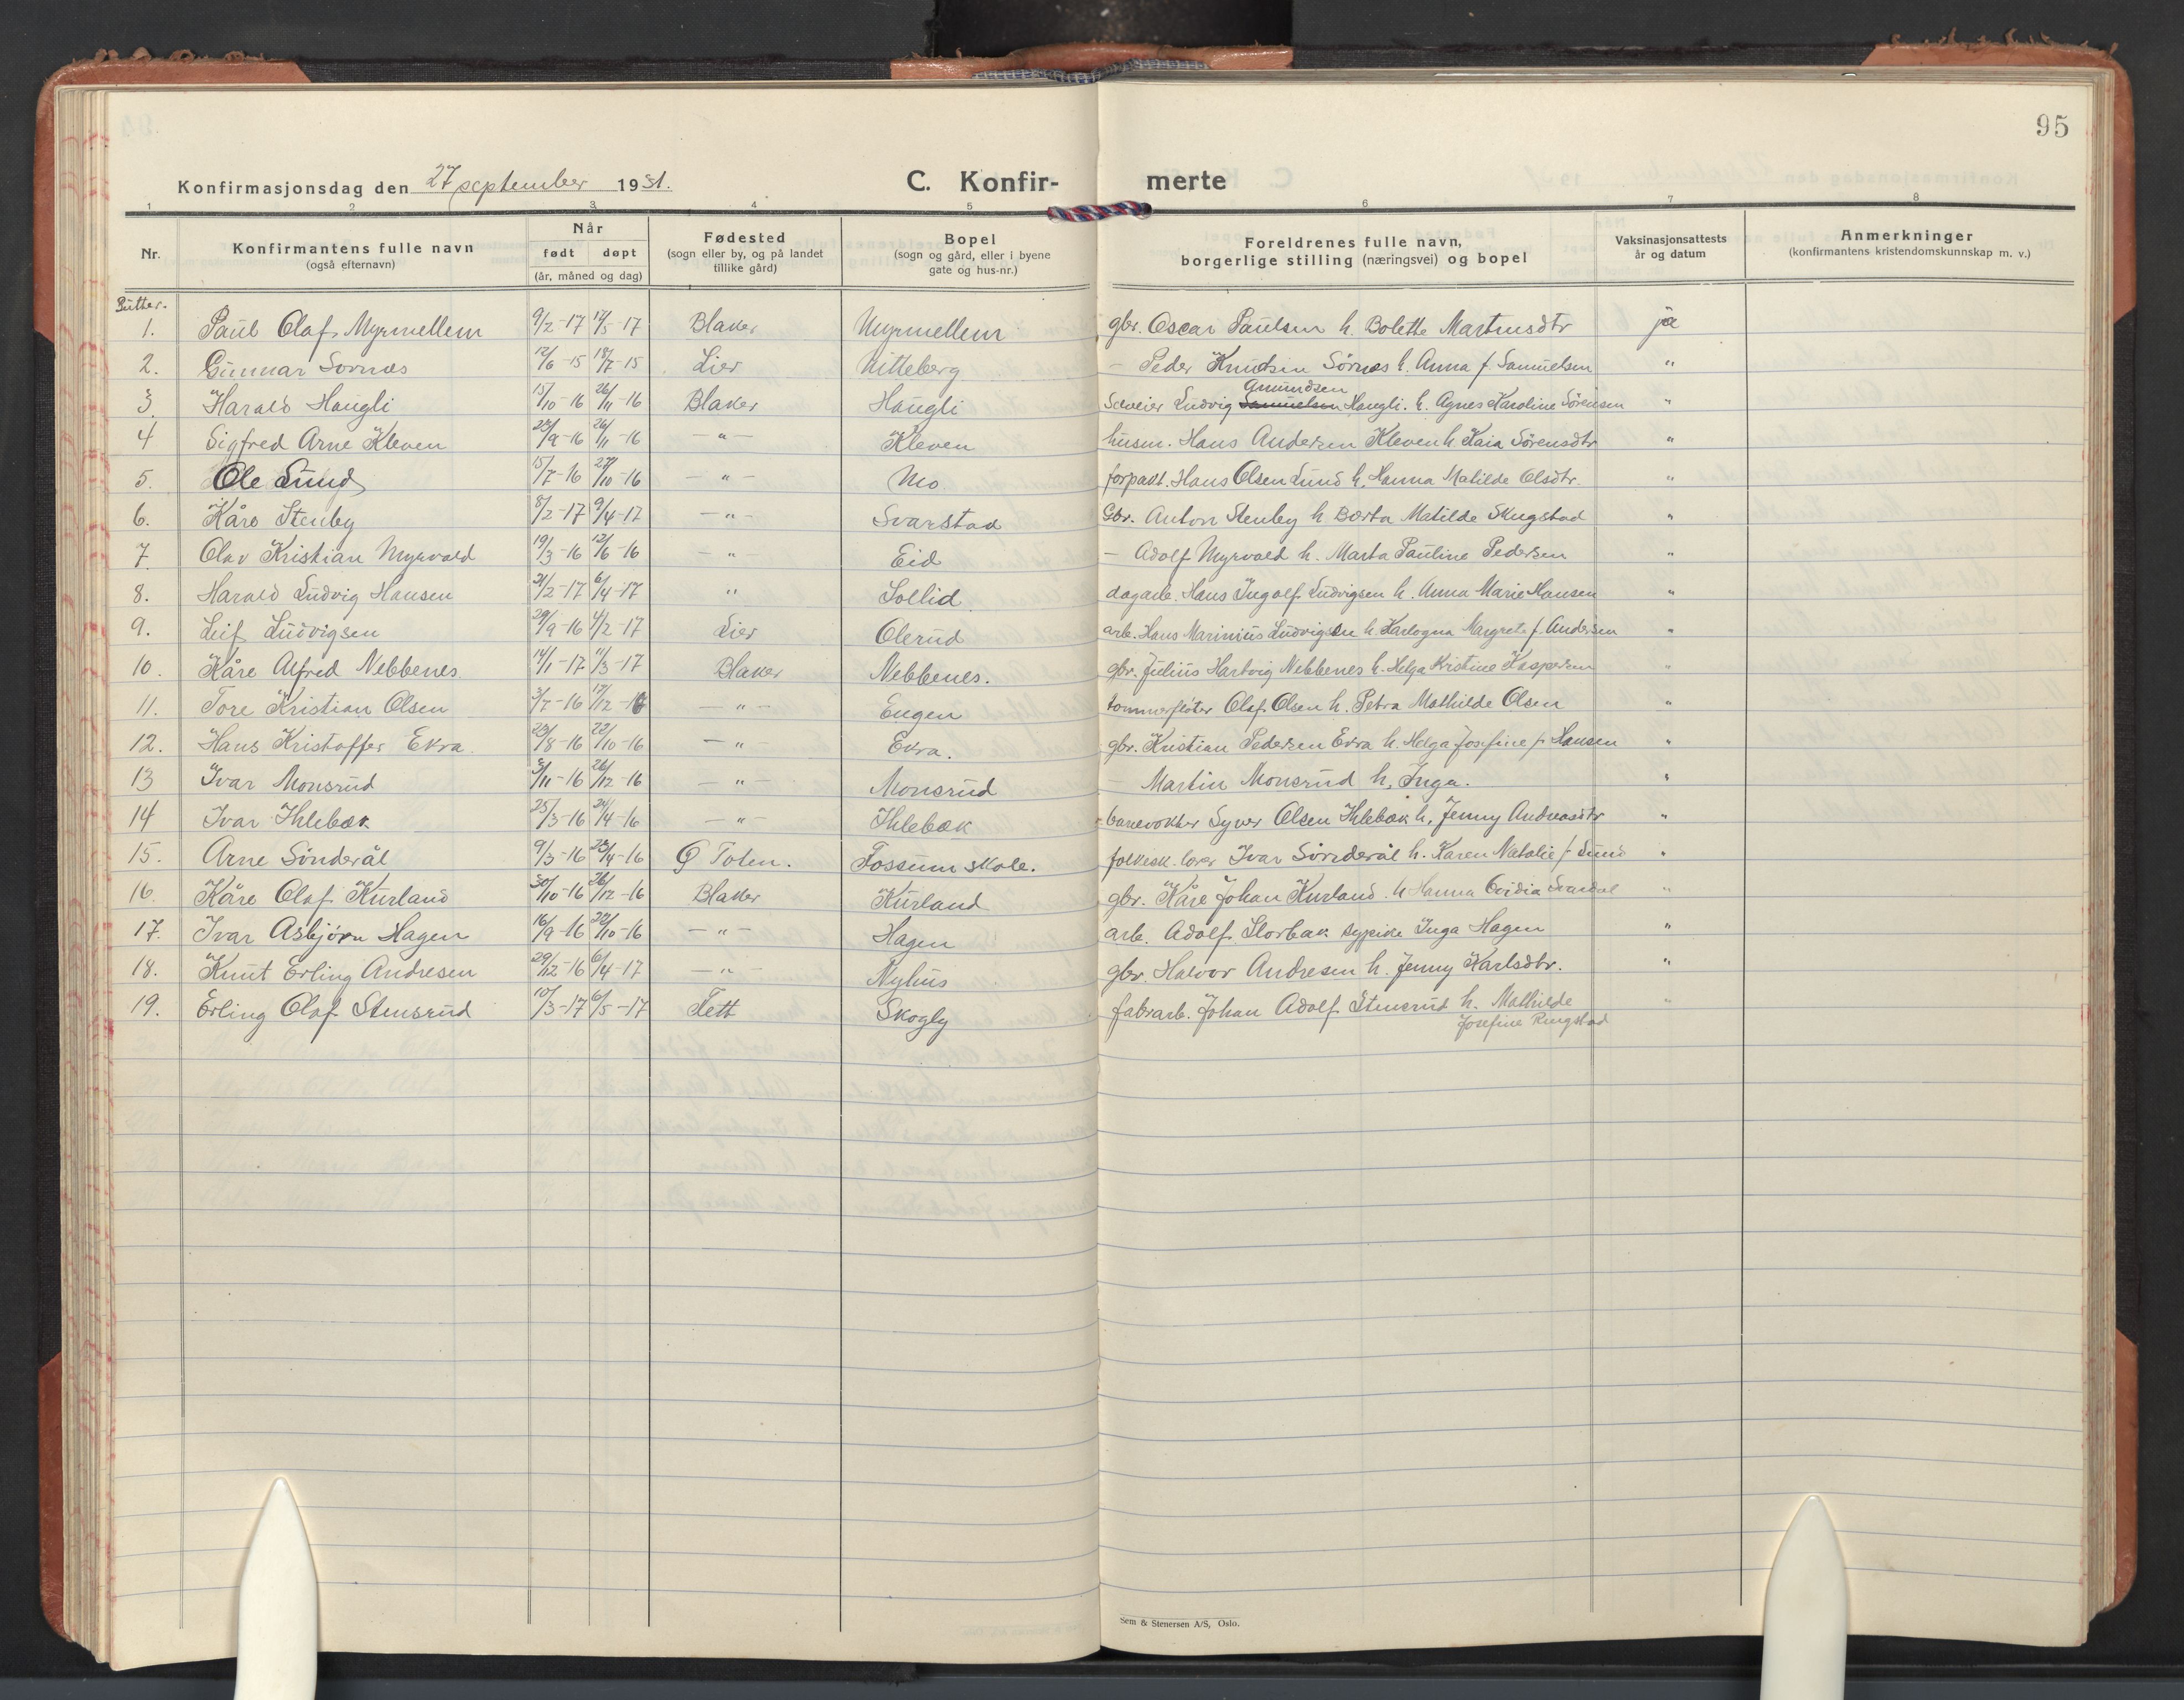 95
Konfirmasjonsdag den 27 september 1931. C. Konfir- merte
1 2 3 4 5 6 7 8
Nr. Konfirmantens fulle navn (også efternavn) Når født døpt (år, måned og dag) Fødested (sogn eller by, og på landet tillike gård) Bopel (sogn og gård, eller i byene gate og hus-nr.) Foreldrenes fulle navn, borgerlige stilling (næringsvei) og bopel Vaksinasjonsattests år og datum Anmerkninger (konfirmantens kristendomskunnskap m. v.)
Gutter.
1. Paul Olaf Myrmellem 9/2-17 17/5-17 Blaker Myrmellem gbr. Oscar Paulsen h. Bolette Martinsdtr ja
2. Gunnar Sørnes 12/6-15 18/7-15 Lier Nitteberg — Peder Knudsen Sørnes h. Anna f. Samuelsen "
3. Harald Haugli 15/10-16 26/11-16 Blaker Haugli Selveier Ludvig Samuelsen Amundsen Haugli. h. Agnes Karoline Sørensen "
4 Sigfred Arne Kleven 23/9-16 26/11-16 — " — Kleven husm. Hans Andersen Kleven h Kaia Sørensdtr "
5. Ole Lund 15/7-16 27/10-16 — " — Mo forpakt. Hans Olsen Lund h. Hanna Matilde Olsdtr. "
6. Kåre Stenby 8/2-17 9/4-17 — " — Svarstad Gbr. Anton Stenby h Berta Matilde Skugstad "
7. Olav Kristian Myrvold 19/3-16 12/6-16 — " — Eid — Adolf Myrvold h. Marta Pauline Pedersen "
8. Harald Ludvig Hansen 21/2-17 6/4-17 " Sollid dagarb. Hans Ingolf Ludvigsen h. Anna Marie Hansen "
9. Leif Ludvigsen 29/9-16 4/2-17 Lier Olerud arb. Hans Marinius Ludvigsen h. Karlogna Margrete f. Andersen "
10. Kåre Alfred Nebbenes 14/1-17 11/3-17 Blaker Nebbenes. gbr. Julius Hartvig Nebbenes h. Helga Kristine Kaspersen "
11. Tore Kristian Olsen 3/7-16 17/12-16 — " — Engen tømmerfløter Olaf Olsen h. Petra Mathilde Olsen "
12. Hans Kristoffer Ekra 23/8-16 22/10-16 — " — Ekra. gbr. Kristian Pedersen Ekra h. Helga Josefine f. Hansen "
13 Ivar Monsrud 5/11-16 26/12-16 — " — Monsrud — Martin Monsrud h. Inga. "
14 Ivar Ihlebæk 25/3-16 24/4-16 — " — Ihlebæk banevokter Syver Olsen Ihlebæk h. Jenny Andreasdtr "
15. Arne Sønderål 9/3-16 23/4-16 Ø Toten. Fossum skole. folkesk. lærer Ivar Sønderål h. Karen Natalie f Lund "
16. Kåre Olaf Kurland 30/10-16 26/12-16 Blaker Kurland gbr. Kåre Johan Kurland h Hanna Ovidia Svardal "
17. Ivar Asbjørn Hagen 16/9-16 22/10-16 — " — Hagen arb. Adolf Storbæk sypike Inga Hagen "
18. Knut Erling Andresen 29/12-16 6/4-17 — " — Nyhus gbr. Halvor Andresen h. Jenny Karlsdtr. "
19. Erling Olaf Stensrud 10/3-17 6/5-17 Fett Skogly fabrarb. Johan Adolf Stensrud h. Mathilde "
Josefine Ringstad
Sem & Stenersen A/S, Oslo.